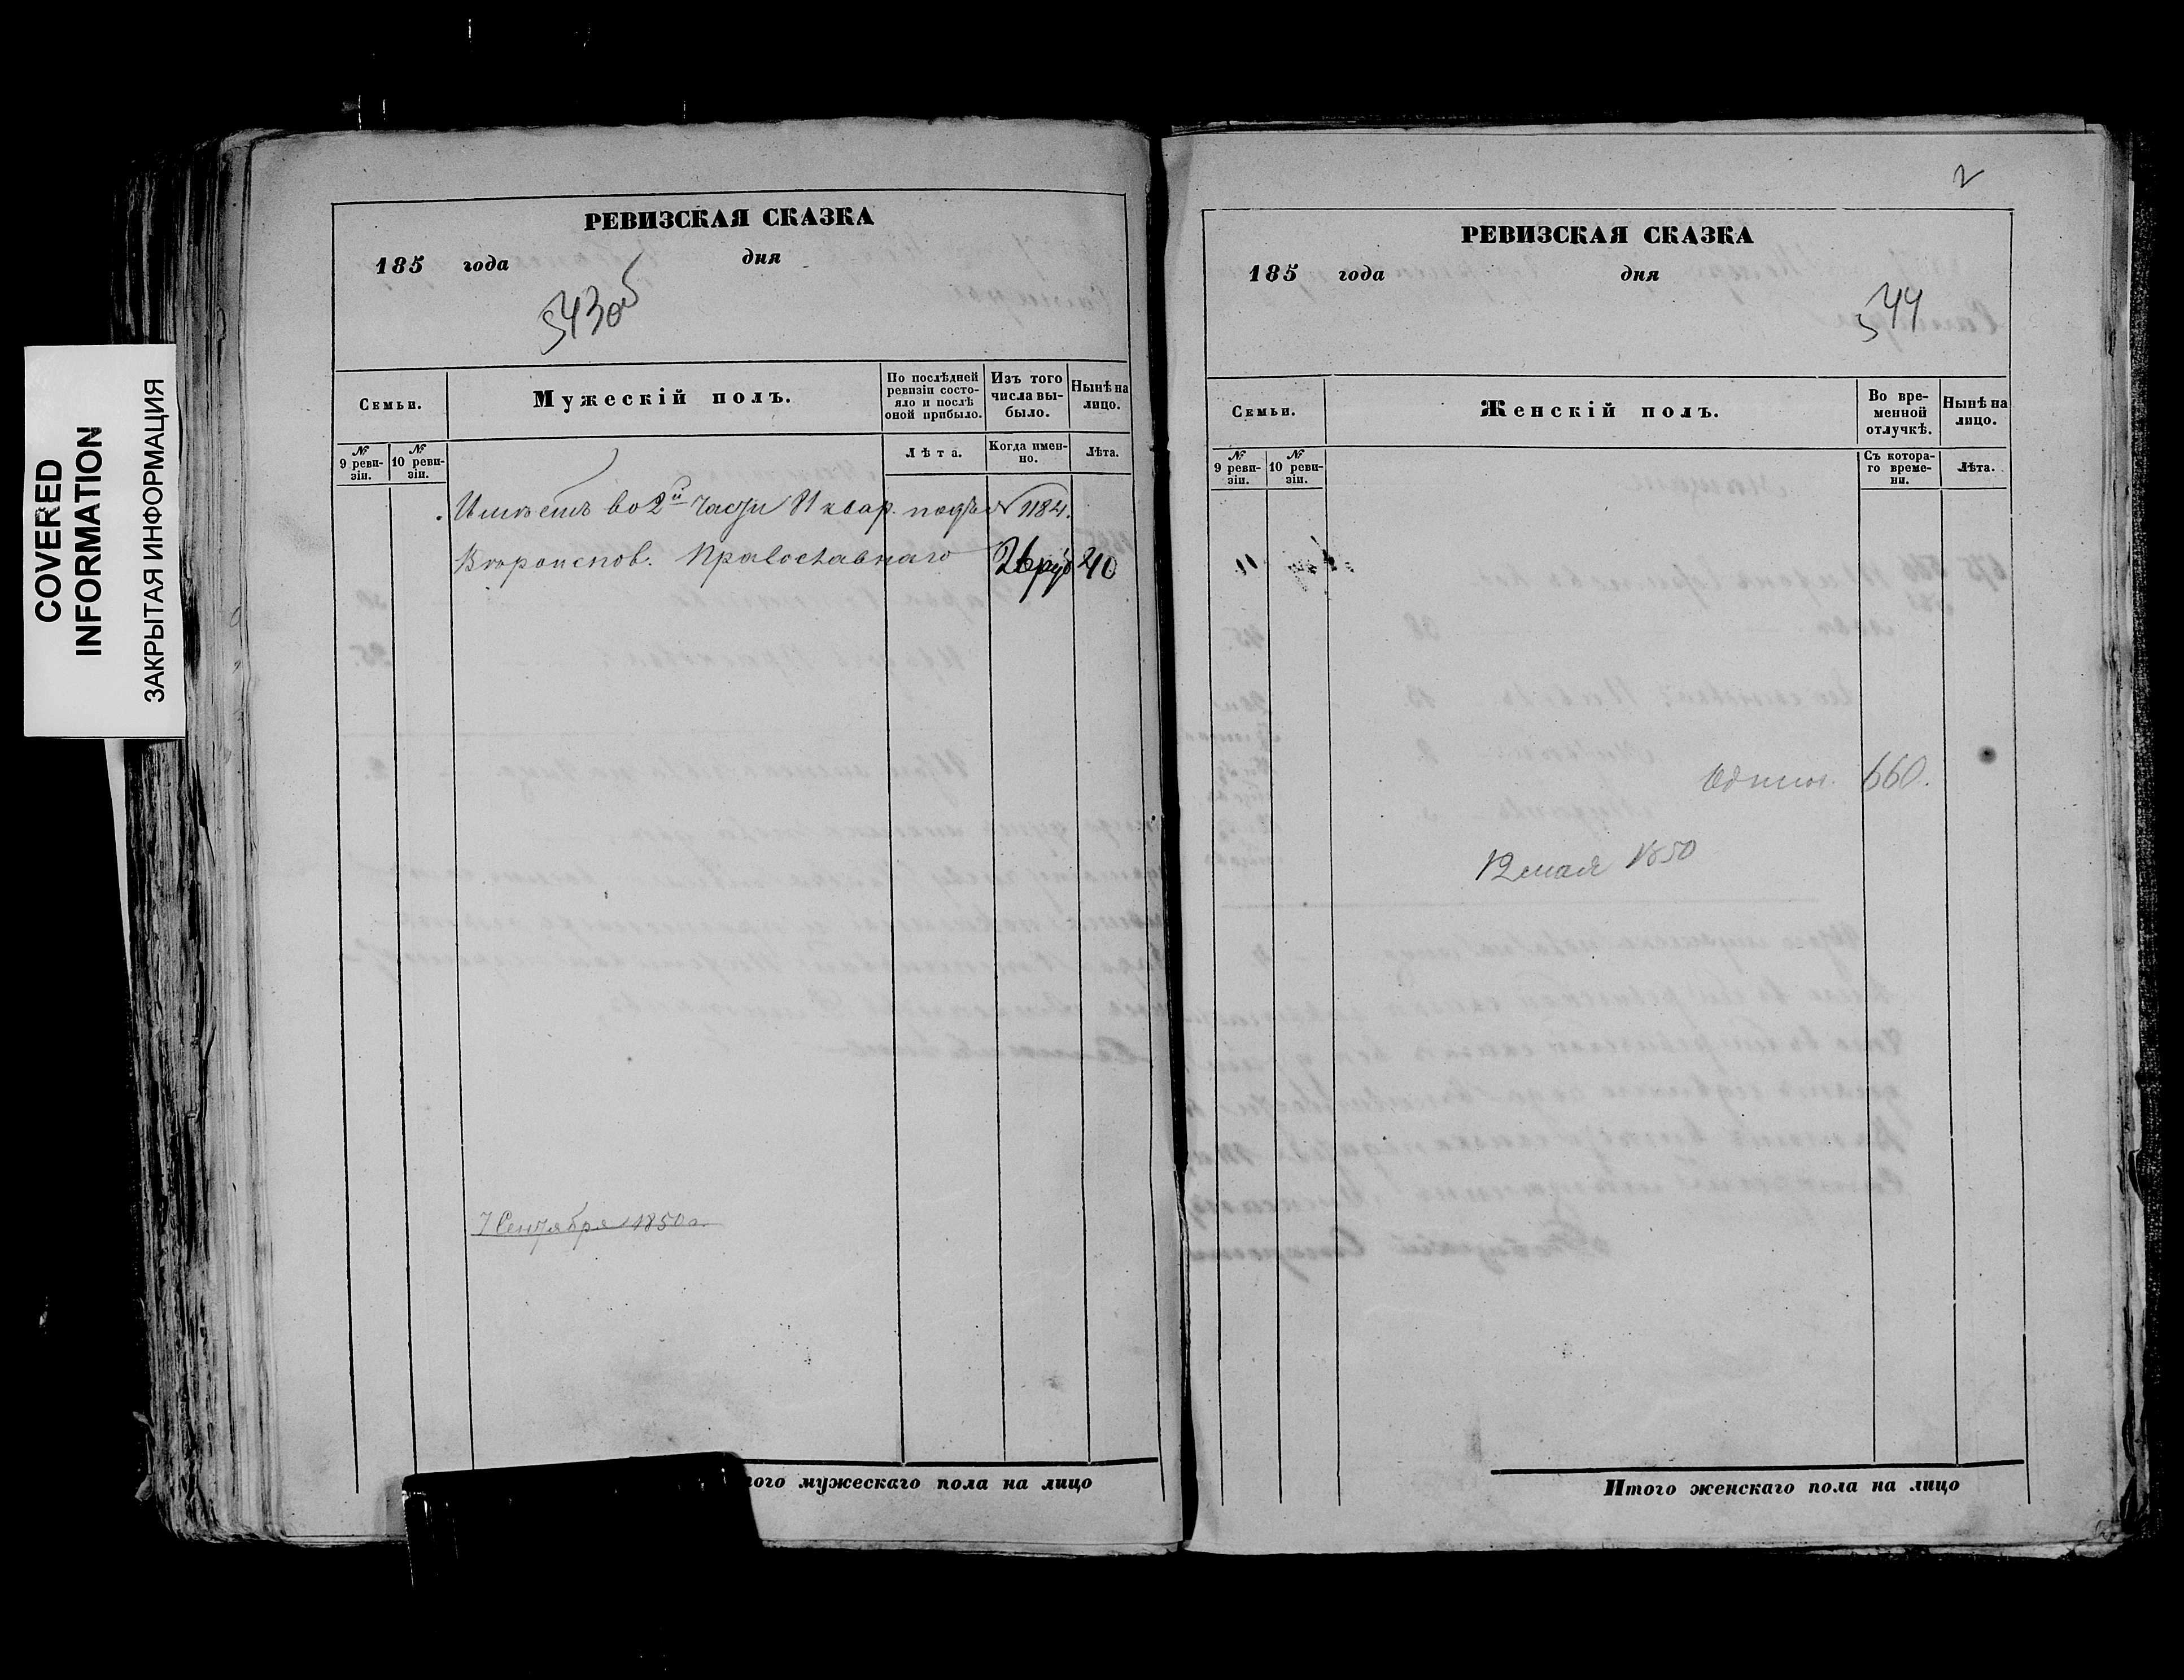 COVERED
INFORMATION
ЗАКРЫТАЯ ИНФОРМАЦИЯ
РЕВИЗСКАЯ СКАЗКА
185 года дня
543об
Семьи.
Мужескій полъ.
По послѣдней ревизіи состояло и послѣ оной прибыло.
Изъ того числа выбыло.
Нынѣ на лицо.
№ 9 ревизіи.
№ 10 ревизіи.
Лѣта.
Когда именно.
Лѣта.
Имѣетъ во 2й части 81 квар. подъ № 1184.
Вѣроиспов. Православнаго 26 руб 40
7 Сентября 1850 г.
того мужескаго пола на лицо
2
РЕВИЗСКАЯ СКАЗКА
185 года дня
544
Семьи.
Женскій полъ.
Во временной отлучкѣ.
Нынѣ на лицо.
№ 9 ревизіи.
№ 10 ревизіи.
Съ котораго времени.
Лѣта.
11
660.
12 мая 1850
Итого женскаго пола на лицо